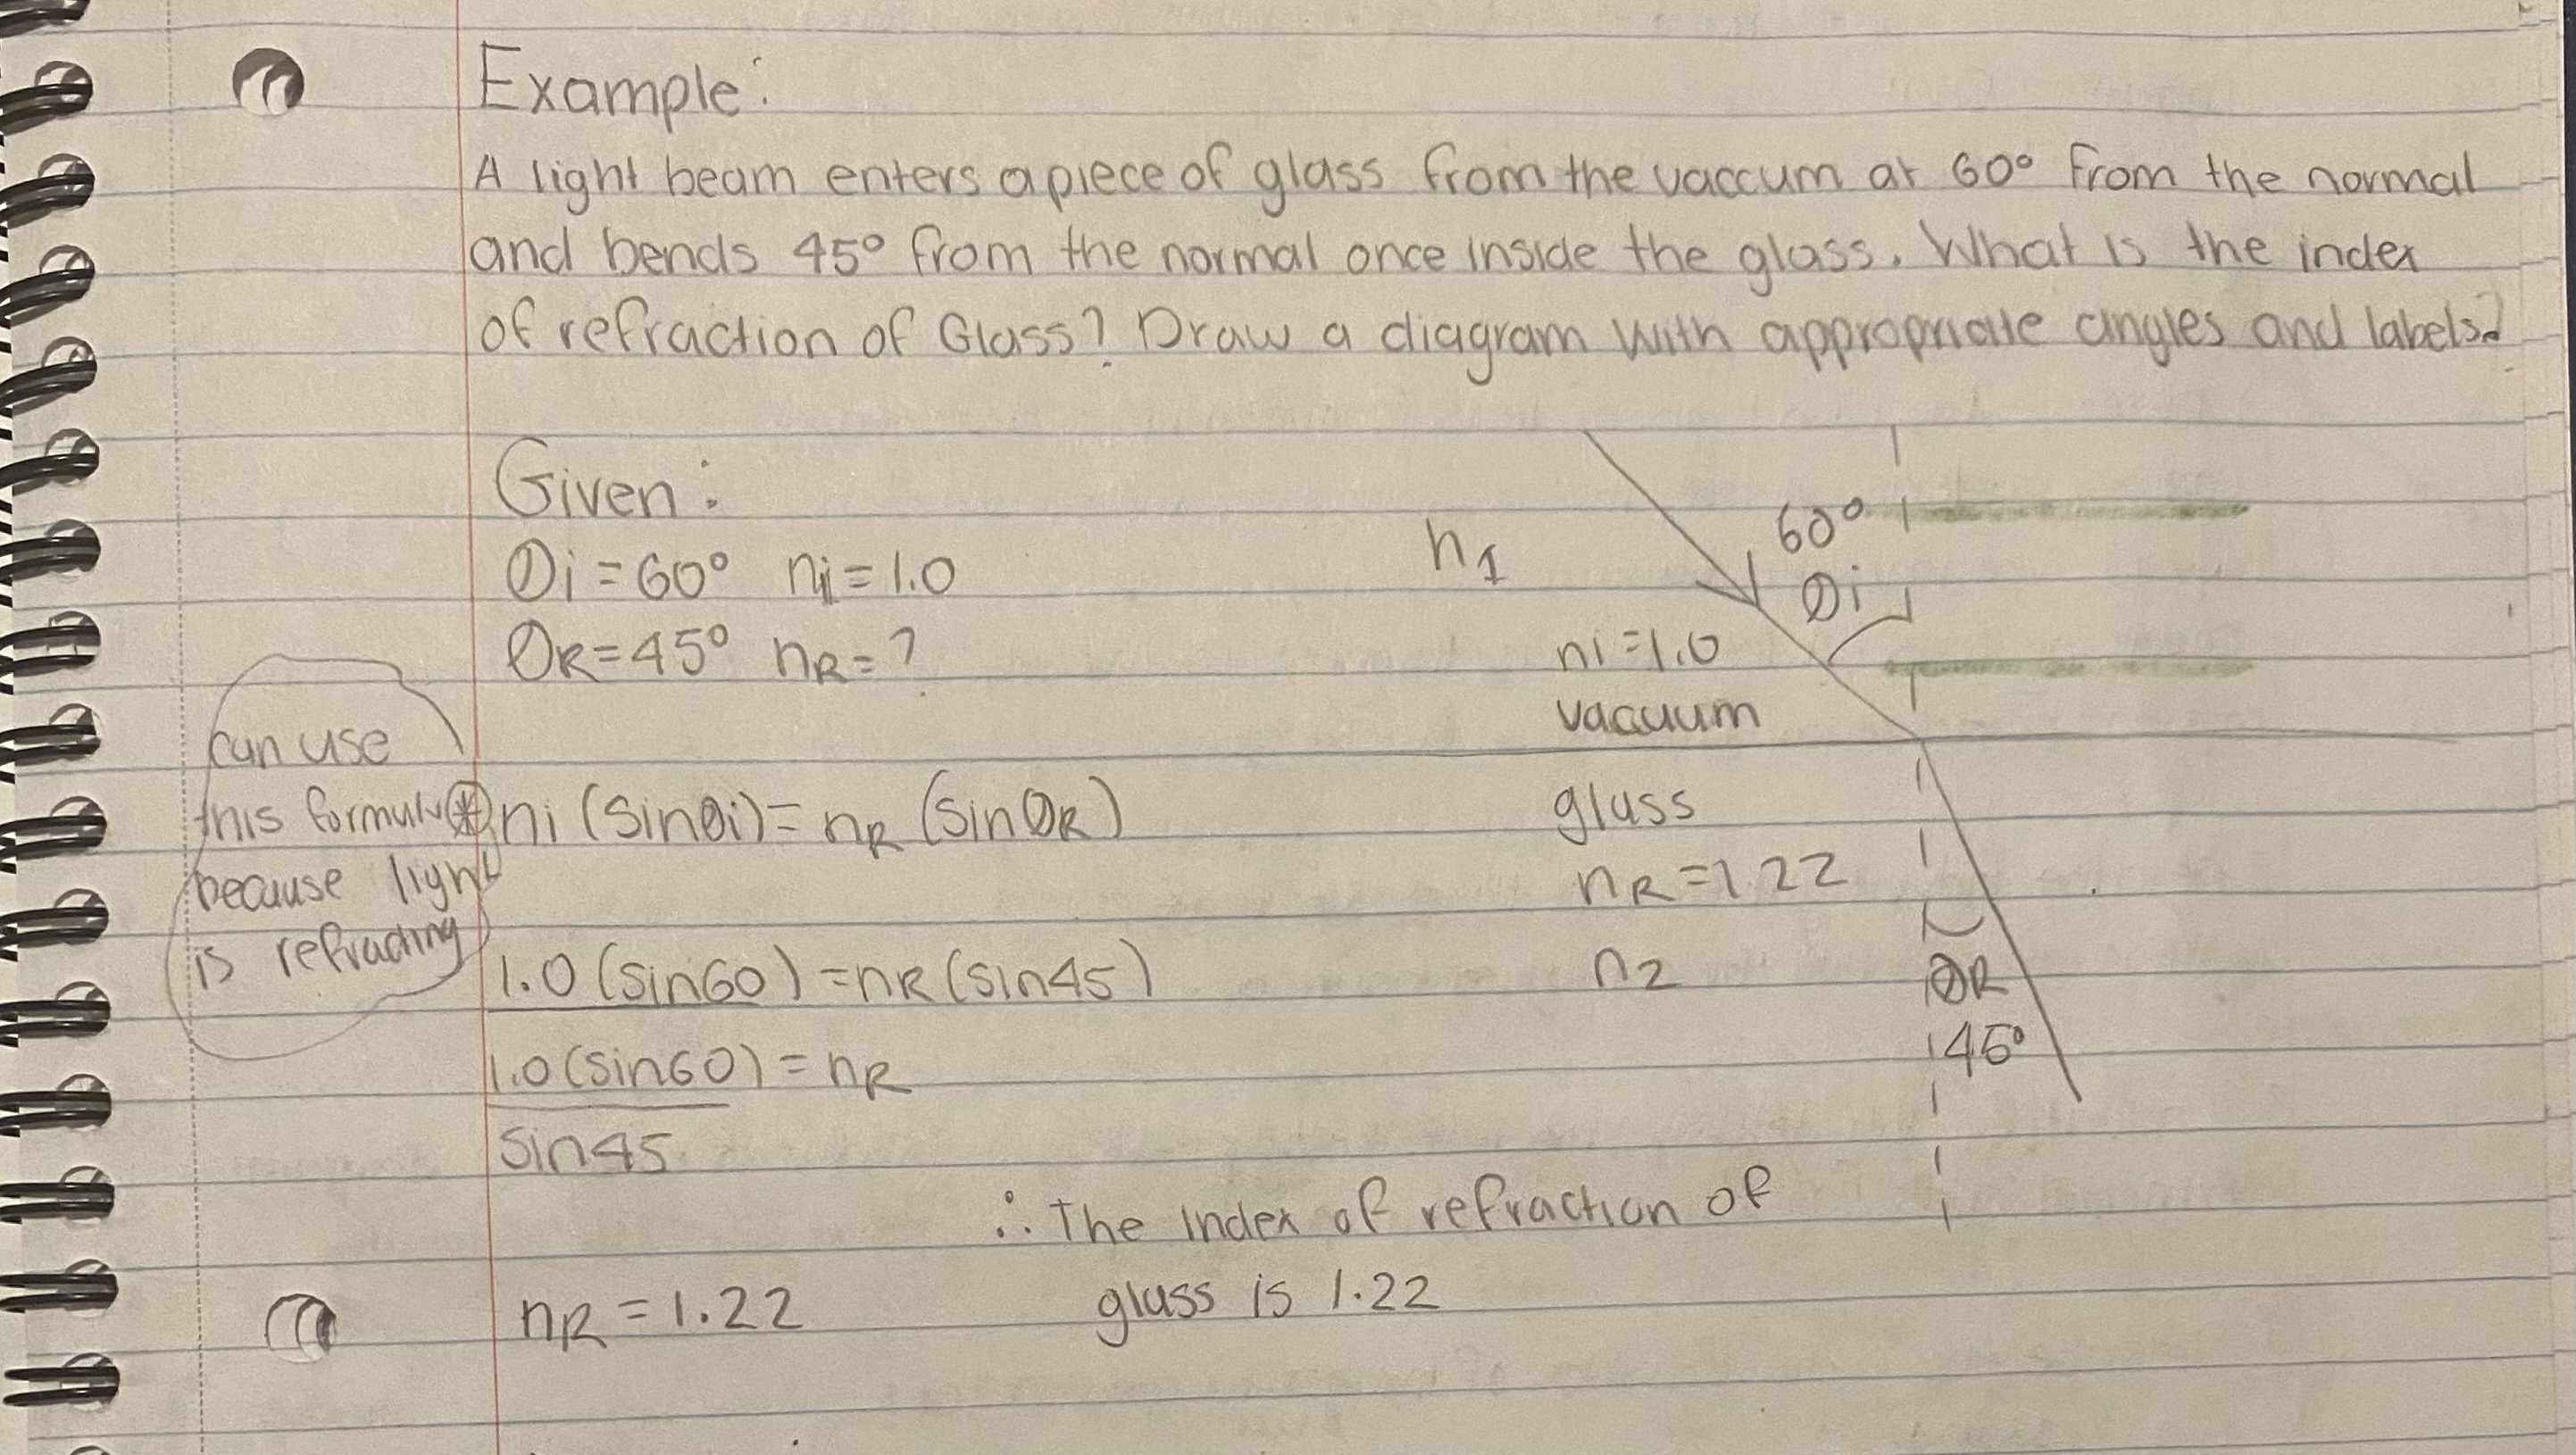 Example:
A light beam enters a piece of glass from the vaccum at 60° from the normal
and bends 45° from the normal once inside the glass. What is the index
of refraction of Glass? Draw a diagram with appropriate angles and labels?
Given:
Θi = 60° ni = 1.0
ΘR = 45° nR = ?
can use
this formula
because light
is refracting
* ni (sinΘi) = nR (sinΘR)
1.0 (sin60) = nR (sin45)
1.0 (sin60) = nR
sin45
nR = 1.22
∴ The index of refraction of
glass is 1.22
n1
60°
Θi
ni = 1.0
vacuum
glass
nR = 1.22
n2
ΘR
45°